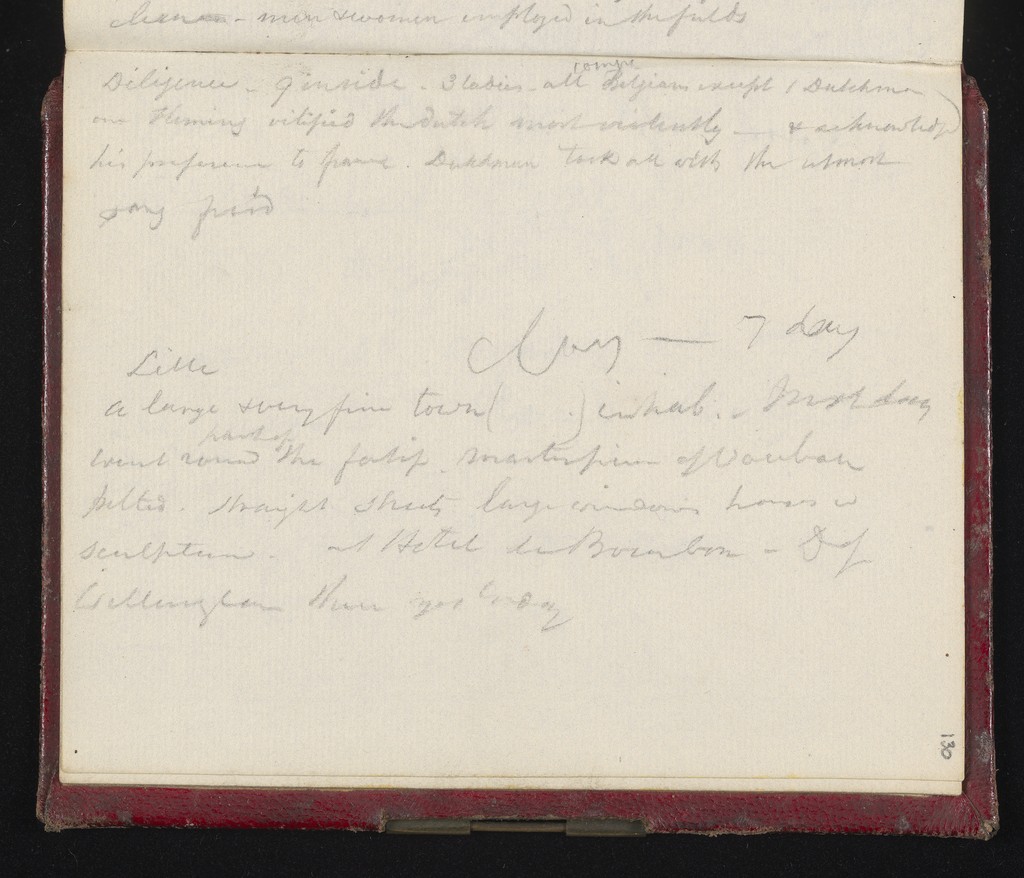 clean - men & women employed in the fields
Diligence - 9 inside - 3 ladies - all Belgians except 1 Dutchman
one Fleming vilified the Dutch most violently - & acknowledged
his preference to France. Dutchman took all with the utmost
sang froid
7 day
Lille
a large & very fine town ( ) inhab. -
went round part of the fortif. Masterpiece of Vauban
straight streets large windows houses
sculpture. at Hotel de Bourbon - D of
Wellington there yesterday
130